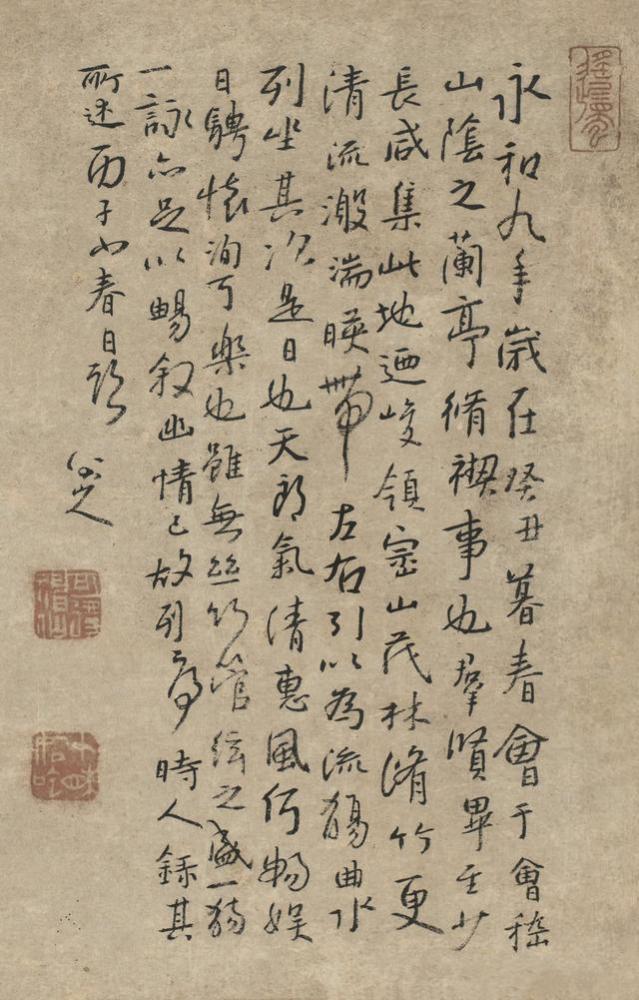 永和九年歲在癸丑暮春會于會稽
山陰之蘭亭脩禊事也羣賢畢至少
長咸集此地迺峻領崇山茂林脩竹更
清流激湍暎帶左右引以為流觴曲水
列坐其次是日也天朗氣清惠風何暢娛
日騁懷洵可樂也雖無絲竹管絃之盛一觴
一詠亦足以暢叙幽情已故列序時人錄其
所述丙子小春日
八大山人
可得神仙